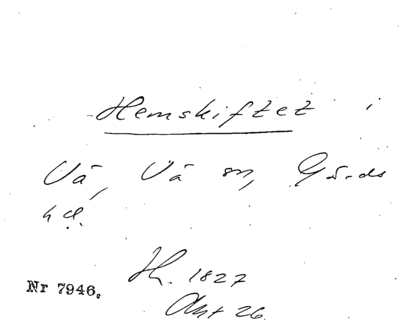 Hemskiftet i
Vä, Vä sn, Gärds
hd.
Hr. 1827
Akt 26.
Nr 7946.